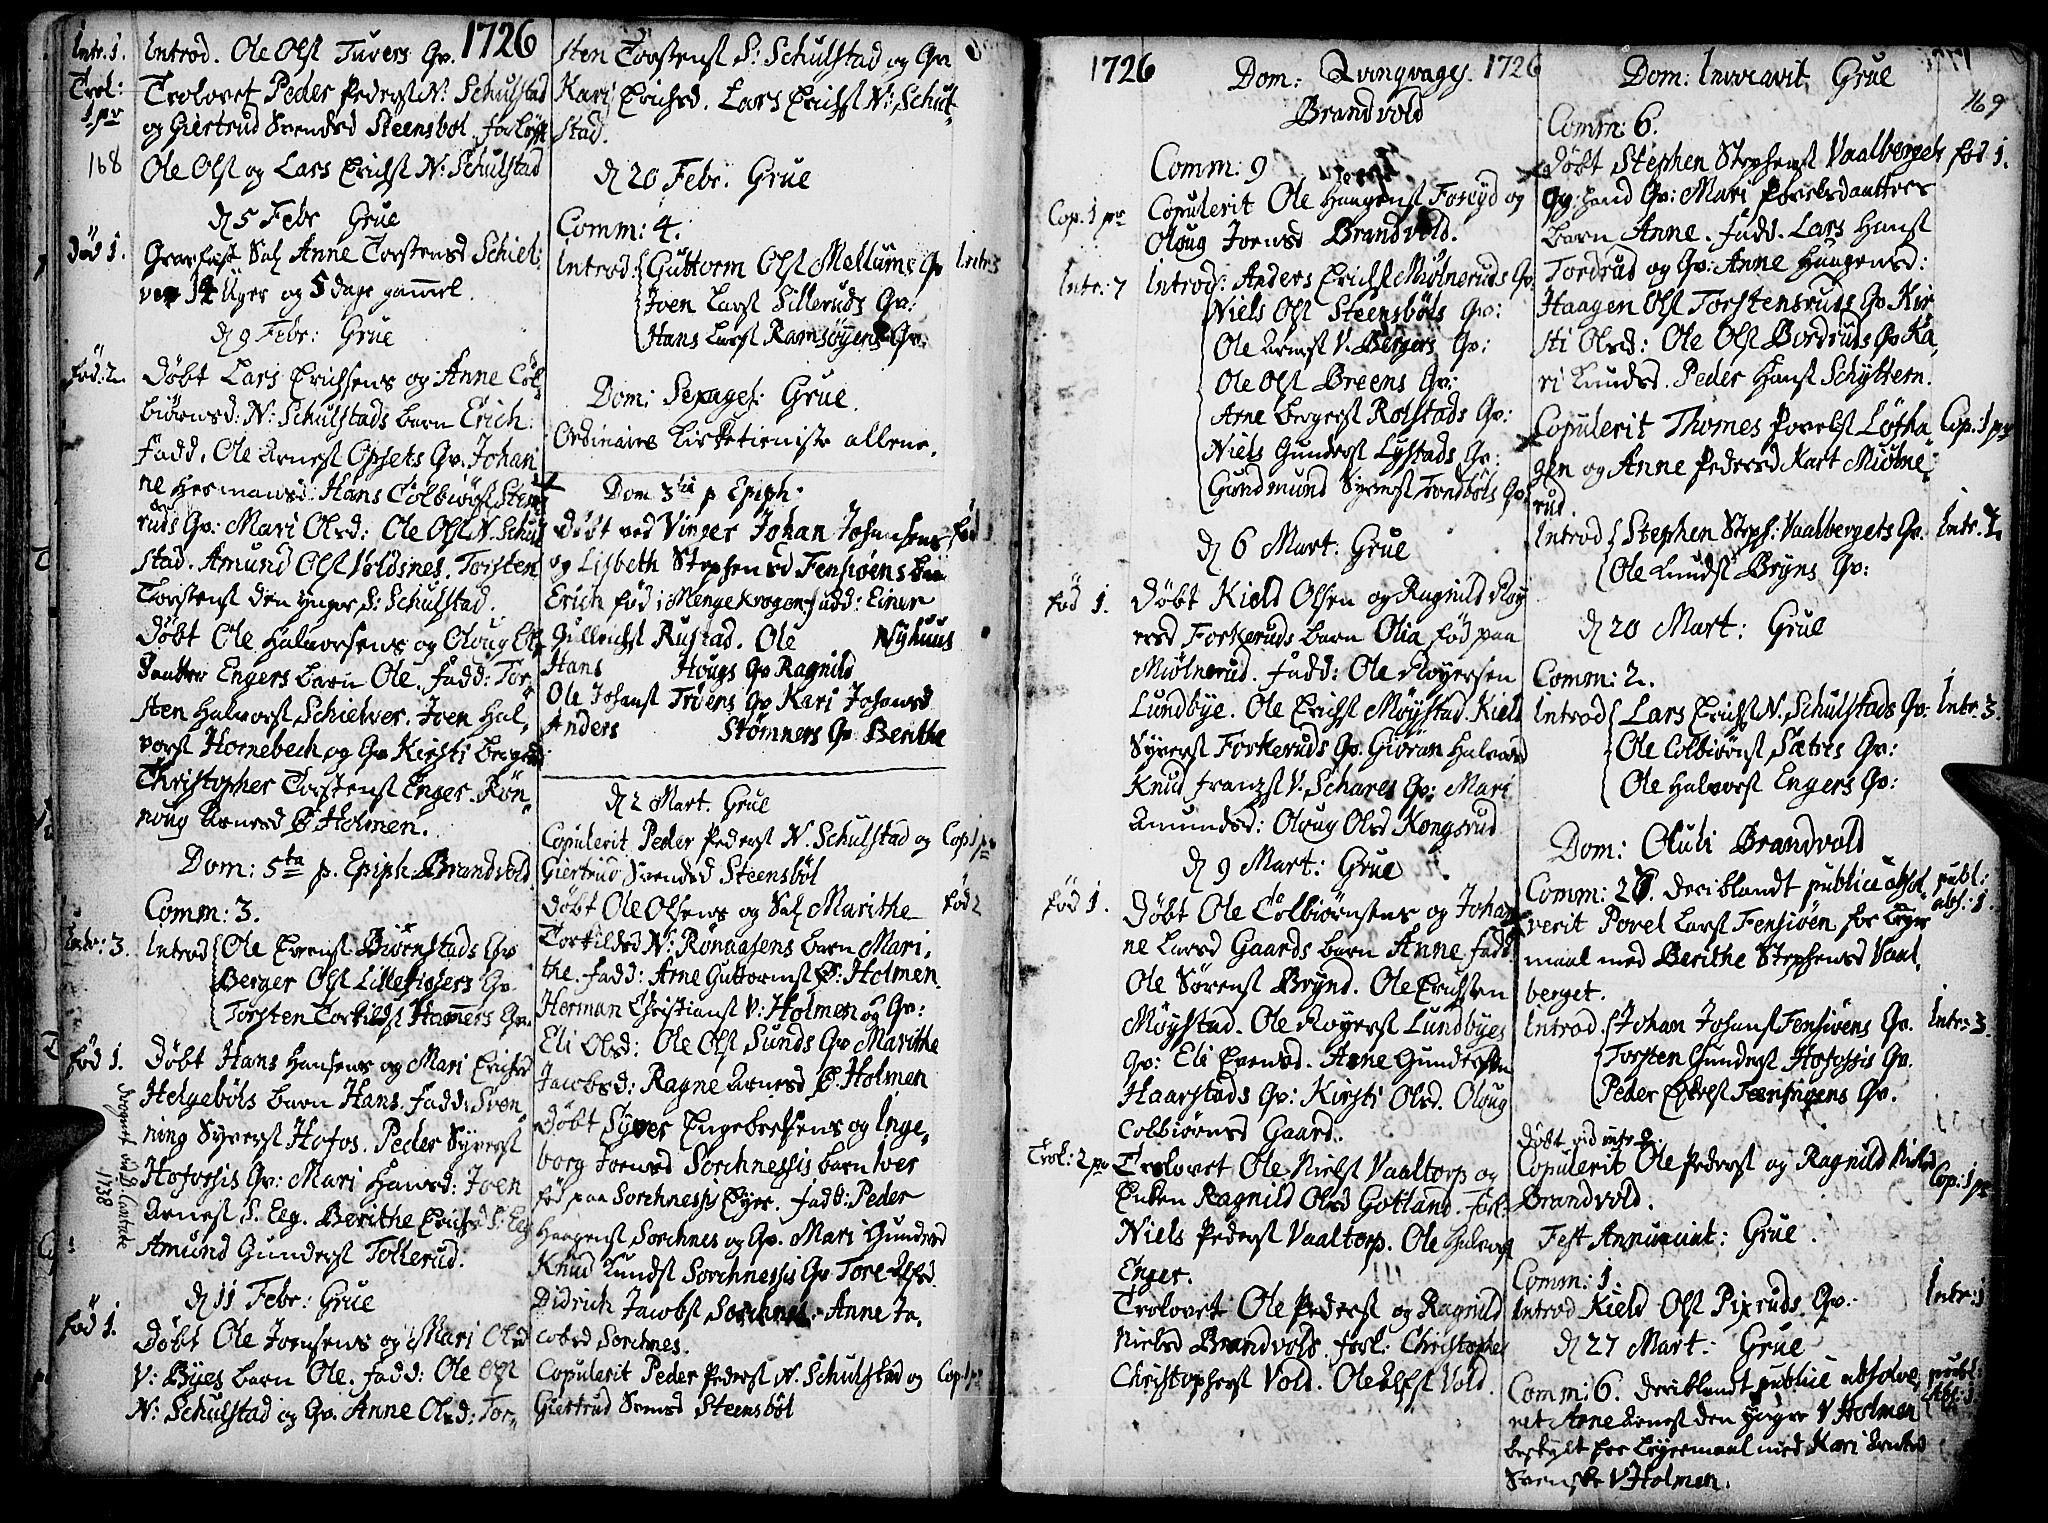 1726
Intr. 1. Introd. Ole Olss Tuvers Qv.
Trol: 1 pr Trolovet Peder Pederss N: Schulstad
og Giertrud Svendsd Steensbøl. forlofft
168 Ole Olss og Lars Erichss N: Schulstad
d 5 Febr Grue
Død 1. Graefest Sal Anne Torstensd Schiel,
ver 14 Uger og 5 dage gammel.
d 9 Febr: Grue
Fød: 2. Døbt Lars Erichsens og Anne Col,
biørnsd: N: Schulstads barn Erich.
Fadd. Ole Arness Opsets Qv. Johan,
ne Hermansd. Hans Colbiørss Steen,
ruds Qv: Mari Olsd: Ole Olss N. Schul
stad. Amund Olss Voldsnes. Torsten
Torstenss den ynger S: Schulstad.
Døbt Ole Halvorsens og Oloug
Engers barn Ole. Fadd: Tor,
sten Halvorss Schielver. Joen Hal,
vorss Hornebech og Qv Kirsti
Christopher Torstenss Enger. Røn,
noug Arnesd Ø Holmen.
Dom: 5ta p. Epiph. Brandvold
Comm: 3.
Intr: 3. Introd Ole Evenss Biørnstads Qv
Berger Olss Lillefiosers Qv.
Torsten Torkildss Hamers Qv.
Fød 1. Døbt Hans Hansens og Mari Erichsd
Helgebøls barn Hans. Fadd: Sven,
ning Syverss Hofos. Peder Syverss
Hofossis Qv: Mari Hansd: Joen
Arness S. Eeg. Berithe Erichsd S: Eeg
Amund Gunderss Tollerud.
1738
d 11 Febr: Grue
Fød 1. Døbt Ole Joensens og Mari Olsd
V: Byes barn Ole. Fadd: Ole Olss
N: Schulstad og Qv. Anne Olsd: Tor,
sten Torstenss S: Schulstad og Qv
Kari Erichsd. Lars Erichss N: Schul,
stad.
d 20 Febr. Grue
Comm: 4.
Introd: Guttorm Olss Mellums Qv Intr: 3
Joen Larss Silleruds Qv:
Hans Larss Ramsøyens Qv:
Dom: Sexages: Grue.
Ordinaire Kirketieniste allene.
Dom 3tia p Epiph:
Døbt ved Vinger Johan Johansens Fød 1.
og Lisbeth Stephensd Fensiøens barn
Erich fød i Mengekrogen. Fadd: Einer
Gullichss Rustad. Ole Nyhuus
Hans Hougs Qv Ragnild
Ole Johanss Trøens Qv Kari Johansd
Anders Stømners Qv Berithe
d 2 Mart. Grue
Copulerit Peder Pederss N. Schulstad og Cop 1 pr
Giertrud Svendsd Steensbøl
Døbt Ole Olsens og Sal Marithe Fød 2
Torkildsd N: Rønaasens barn Mari,
the. Fadd: Arne Guttormss Ø: Holmen
Herman Christianss V: Holmen og Qv:
Eli Olsd: Ole Olss Sunds Qv Marithe
Jacobsd: Ragne Arnesd Ø. Holmen
Døbt Syver Engebretsens og Inge,
borg Joensd Sorchnessis barn Iver
fød paa Sorchnessis Eyer. Fadd: Peder
Haagenss Sorchnes og Qv. Mari Gundersd
Knud Knudss Sorchnessis Qv Tore Olsd.
Didrich Jacobss Sorchnes. Anne Ja,
cobsd Sorchnes.
Copulerit Peder Pederss N. Schulstad og Cop 1 pr
Giertrud Svensd Steensbøl
1726 Dom: Qvinqvages. 1726
Brandvold
Comm: 9
Cop. 1 pr Copulerit Ole Haagenss Foreyd og
Oloug Joensd Brandvold.
Intr: 7 Introd: Anders Erichss Miølneruds Qv
Niels Olss Steensbøls Qv:
Ole Arness V. Bergers Qv:
Ole Olss Breens Qv:
Arne Bergerss Rolstads Qv:
Niels Gunderss Lystads Qv:
Gundmund Syverss Trondbøls Qv
d 6 Mart: Grue
Fød 1. Døbt Kield Olsen og Ragnild Roy
ersd Forkeruds barn Olia fød paa
Miølnerud. Fadd: Ole Royersen
Lundbye. Ole Erichss Møystad. Kield
Syverss Forkeruds Qv. Giøran Halvorsd
Knud Franzss V. Schares Qv: Mari
Amundsd: Oloug Olsd Kongsrud
d 9 Mart: Grue
Fød 1. Døbt Ole Colbiørnsens og Johan
ne Larsd Gaards barn Anne fadd:
Ole Sørenss Brynd. Ole Erichsen
Møystad. Ole Royerss Lundbyes
Qv: Eli Evensd. Arne Gundersen
Haarstads Qv: Kirsti Olsd. Oloug
Colbiørnsd Gaard.
Trol: 2 pr Trolovet Ole Nielss Vaaltorp og
Enken Ragnild Olsd Gotland. Forl:
Niels Pederss Vaaltorp. Ole Halvorss
Enger.
Trolovet Ole Pederss og Ragnild
Nielsd Brandvold. Forl: Christopher
Christopherss Vold. Ole Olss Vold.
Dom: Invocavit Grue
169
Comm: 6.
Døbt Stephen Stephenss Vaalbergets Fød 1.
Qv: Mari Povelsdautters
barn Anne. Fadd. Lars Hanss
Tordrud og Qv: Anne Haagensd:
Haagen Olss Torstensruds Qv Kir
sti Olsd: Ole Olss Bordruds Qv Ka,
ri Knudsd. Peder Hanss Schyttern.
Copulerit Thomes Povelss Løtha, Cop. 1 pr
gen og Anne Pedersd Kart Miølne,
rud.
Introd Stephen Steph: Vaalbergets Qv. Intr. 2.
Ole Knudss Bryns Qv:
d 20 Mart: Grue
Comm: 2.
Introd Lars Erichss N. Schulstads Qv: Intr. 3.
Ole Colbiørnss Sætres Qv:
Ole Halvorss Engers Qv:
Dom: Oculi Brandvold
Comm: 26. deriblandt publice absol, publ:
verit Povel Larss Fensiøen for Leyer abs: 1.
maal med Berithe Stephensd Vaal,
berget.
Introd Johan Johanss Fensiøens Qv. Intr: 3.
Torsten Gunderss Hofossis Qv.
Peder Qv.
Copulerit Ole Pederss og Ragnild Nielsd Cop: 1 pr
Brandvold.
Fest Annunciat: Grue.
Comm: 1.
Introd Kield Olss Pixruds Qv. Intr: 1
d 27 Mart: Grue
Comm: 6. deriblandt publice absolve, publ:
ret Arne Arness den yngre V Holmen Abs: 1
beskylt for Leyermaal med Kari
Svenske V Holmen.